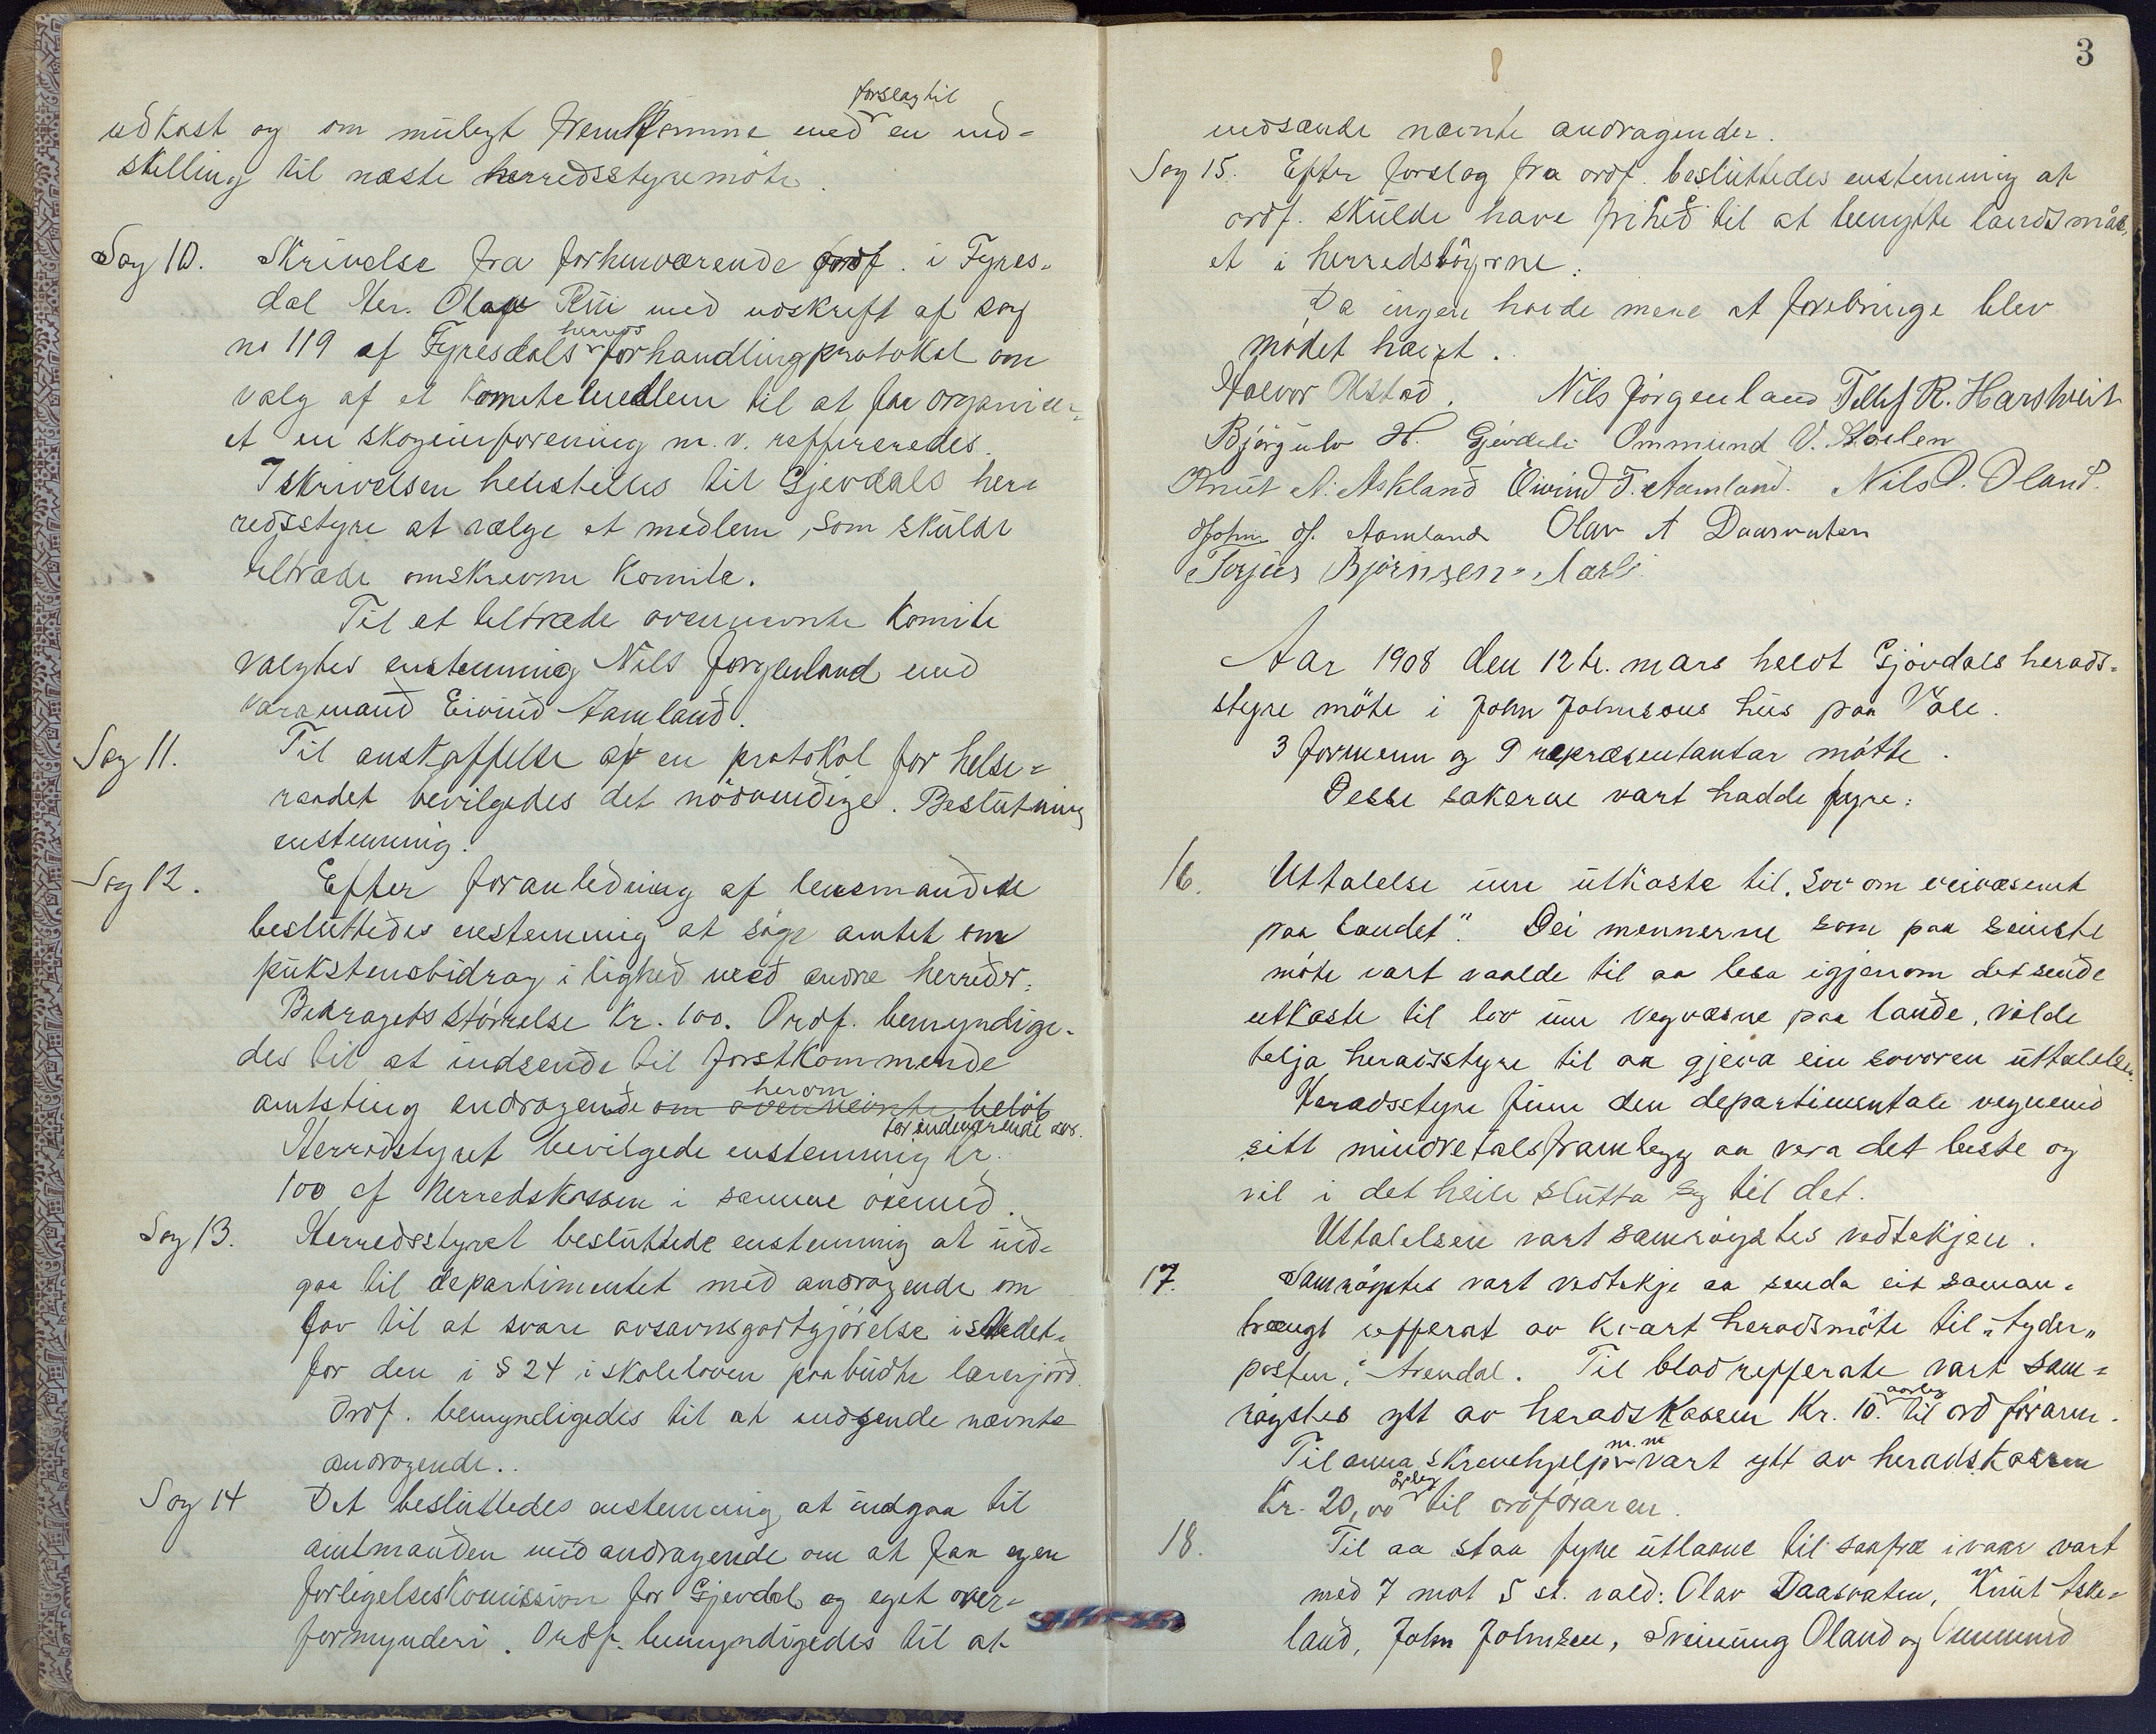 forslag til
udkast og om muligt fremkomme med en ind-
stilling til næste herredsstyremöte.
Sag 10. Skrivelse fra forhenværende ordf. i Fyres-
dal Hr. Olav Rui med udskrift af sag
no 119 af Fyresdals herreds forhandlingprotokol om
valg af et komitemedlem til at faa organiser-
et en skogeierforening m. v. reffereredes.
I skrivelsen henstilles til Gjevdals her-
redsstyre at vælge et medlem, som skulde
tiltræde omskrevne komite.
Til at tiltræde ovennevnte komite
valgtes enstemmig Nils Jørgenland med
varamand Eivind Aamland.
Sag 11. Til anskaffelse af en protokol for helse-
raadet bevilgedes det nödvendige. Beslutning
enstemmig.
Sag 12. Efter foranledning af lensmanden
besluttedes enstemmig at søge amtet om
pukstensbidrag i lighed med andre herreder.
Bidragets størrelse Kr. 100. Ordf. bemyndige-
des til at indsende til førstkommende
amtsting andragende om ovennevnte beløb herom
for indeværende aar.
Herredstyret bevilgede enstemmig Kr.
100 af herredskassen i samme øiemed.
Sag 13. Herredsstyret besluttede enstemmig at ind-
gaa til departimentet med andragende om
lov til at svare avsavnsgodtgjørelse istedet-
for den i § 24 i skoleloven paabudte lærerjord.
Ordf. bemyndigedes til at indsende nævnte
andragende..
Sag 14 Det besluttedes enstemmig at indgaa til
amtmanden med andragende om at faa egen
forligelseskomission for Gjevdal og eget over-
formynderi. Ordf. bemyndigedes til at
3
indsænde nævnte andragender.
Sag 15. Efter forslag fra ordf. besluttedes enstemmig at
ordf. skulde have frihed til at benytte landsmål-
et i herredsbøgerne.
Da ingen havde mere at frembringe blev
mødet hævet.
Halvor Olstad. Nils Jörgenland Tellef R. Harstveit
Björgulv H. Gjevdeli Ommund O. Støelen
Knut A. Askland Eivind T. Aamland. Nils O. Oland.
John J. Aamland Olav A Daasvaten
Torjus Bjørnsen Narli.
Aar 1908 den 12te. mars heldt Gjövdals herads-
styre möte i John Johnsons hus paa Vole.
3 formenn og 9 repræsentantar møtte.
Desse sakerne vart hadde fyre:
16. Uttalelse um utkaste til „Lov om veivæsenet
paa landet“. Dei mennerne som paa seinste
möte vart valde til aa lesa igjenom det sende
utkaste til lov um vegvæsne paa lande, vilde
telja heradsstyre til aa gjeva ein sovoren uttalelse.
Heradsstyre finn den departimentale vegnemd
sitt mindretalsframlegg aa vera det beste og
vil i det heile slutta seg til det.
Uttalelsen vart samrøystes vedtekjen.
17. Samröystes vart vedtekje aa senda eit saman-
trængt refferat av kvart heradsmöte til „Agder-
posten“, Arendal. Til bladrefferate vart sam-
røystes ytt av heradskassen Kr. 10. aarleg til ordføraren.
Til anna skrivehjelp m. m vart ytt av heradskassen
Kr. 20,00 årleg til ordføraren.
18. Til aa staa fyre utlaane til saafræ i vaar vart
med 7 mot 5 st. vald: Olav Daasvaten, Knut Aske-
land, John Johnsen, Sveinung Oland og Ommund